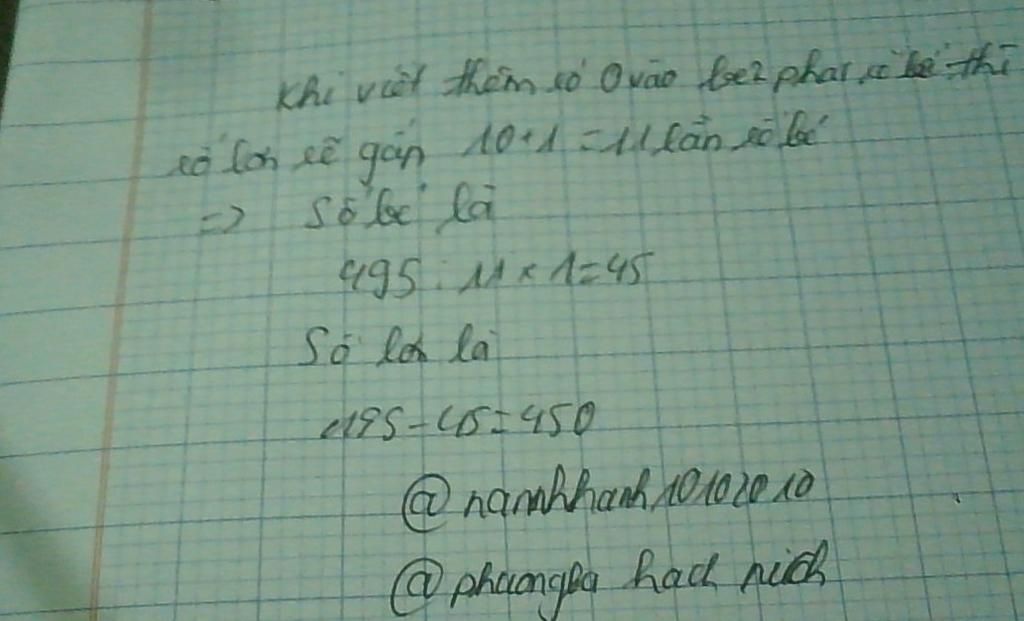 Khi viết thêm số 0 vào bên phải số bé thì
số lớn sẽ gấp 10+1=11 lần số bé
=> Số bé là
495 : 11 × 1=45
Số lớn là
495-45=450
@namhhanh,10102010
@phuongba hach hich